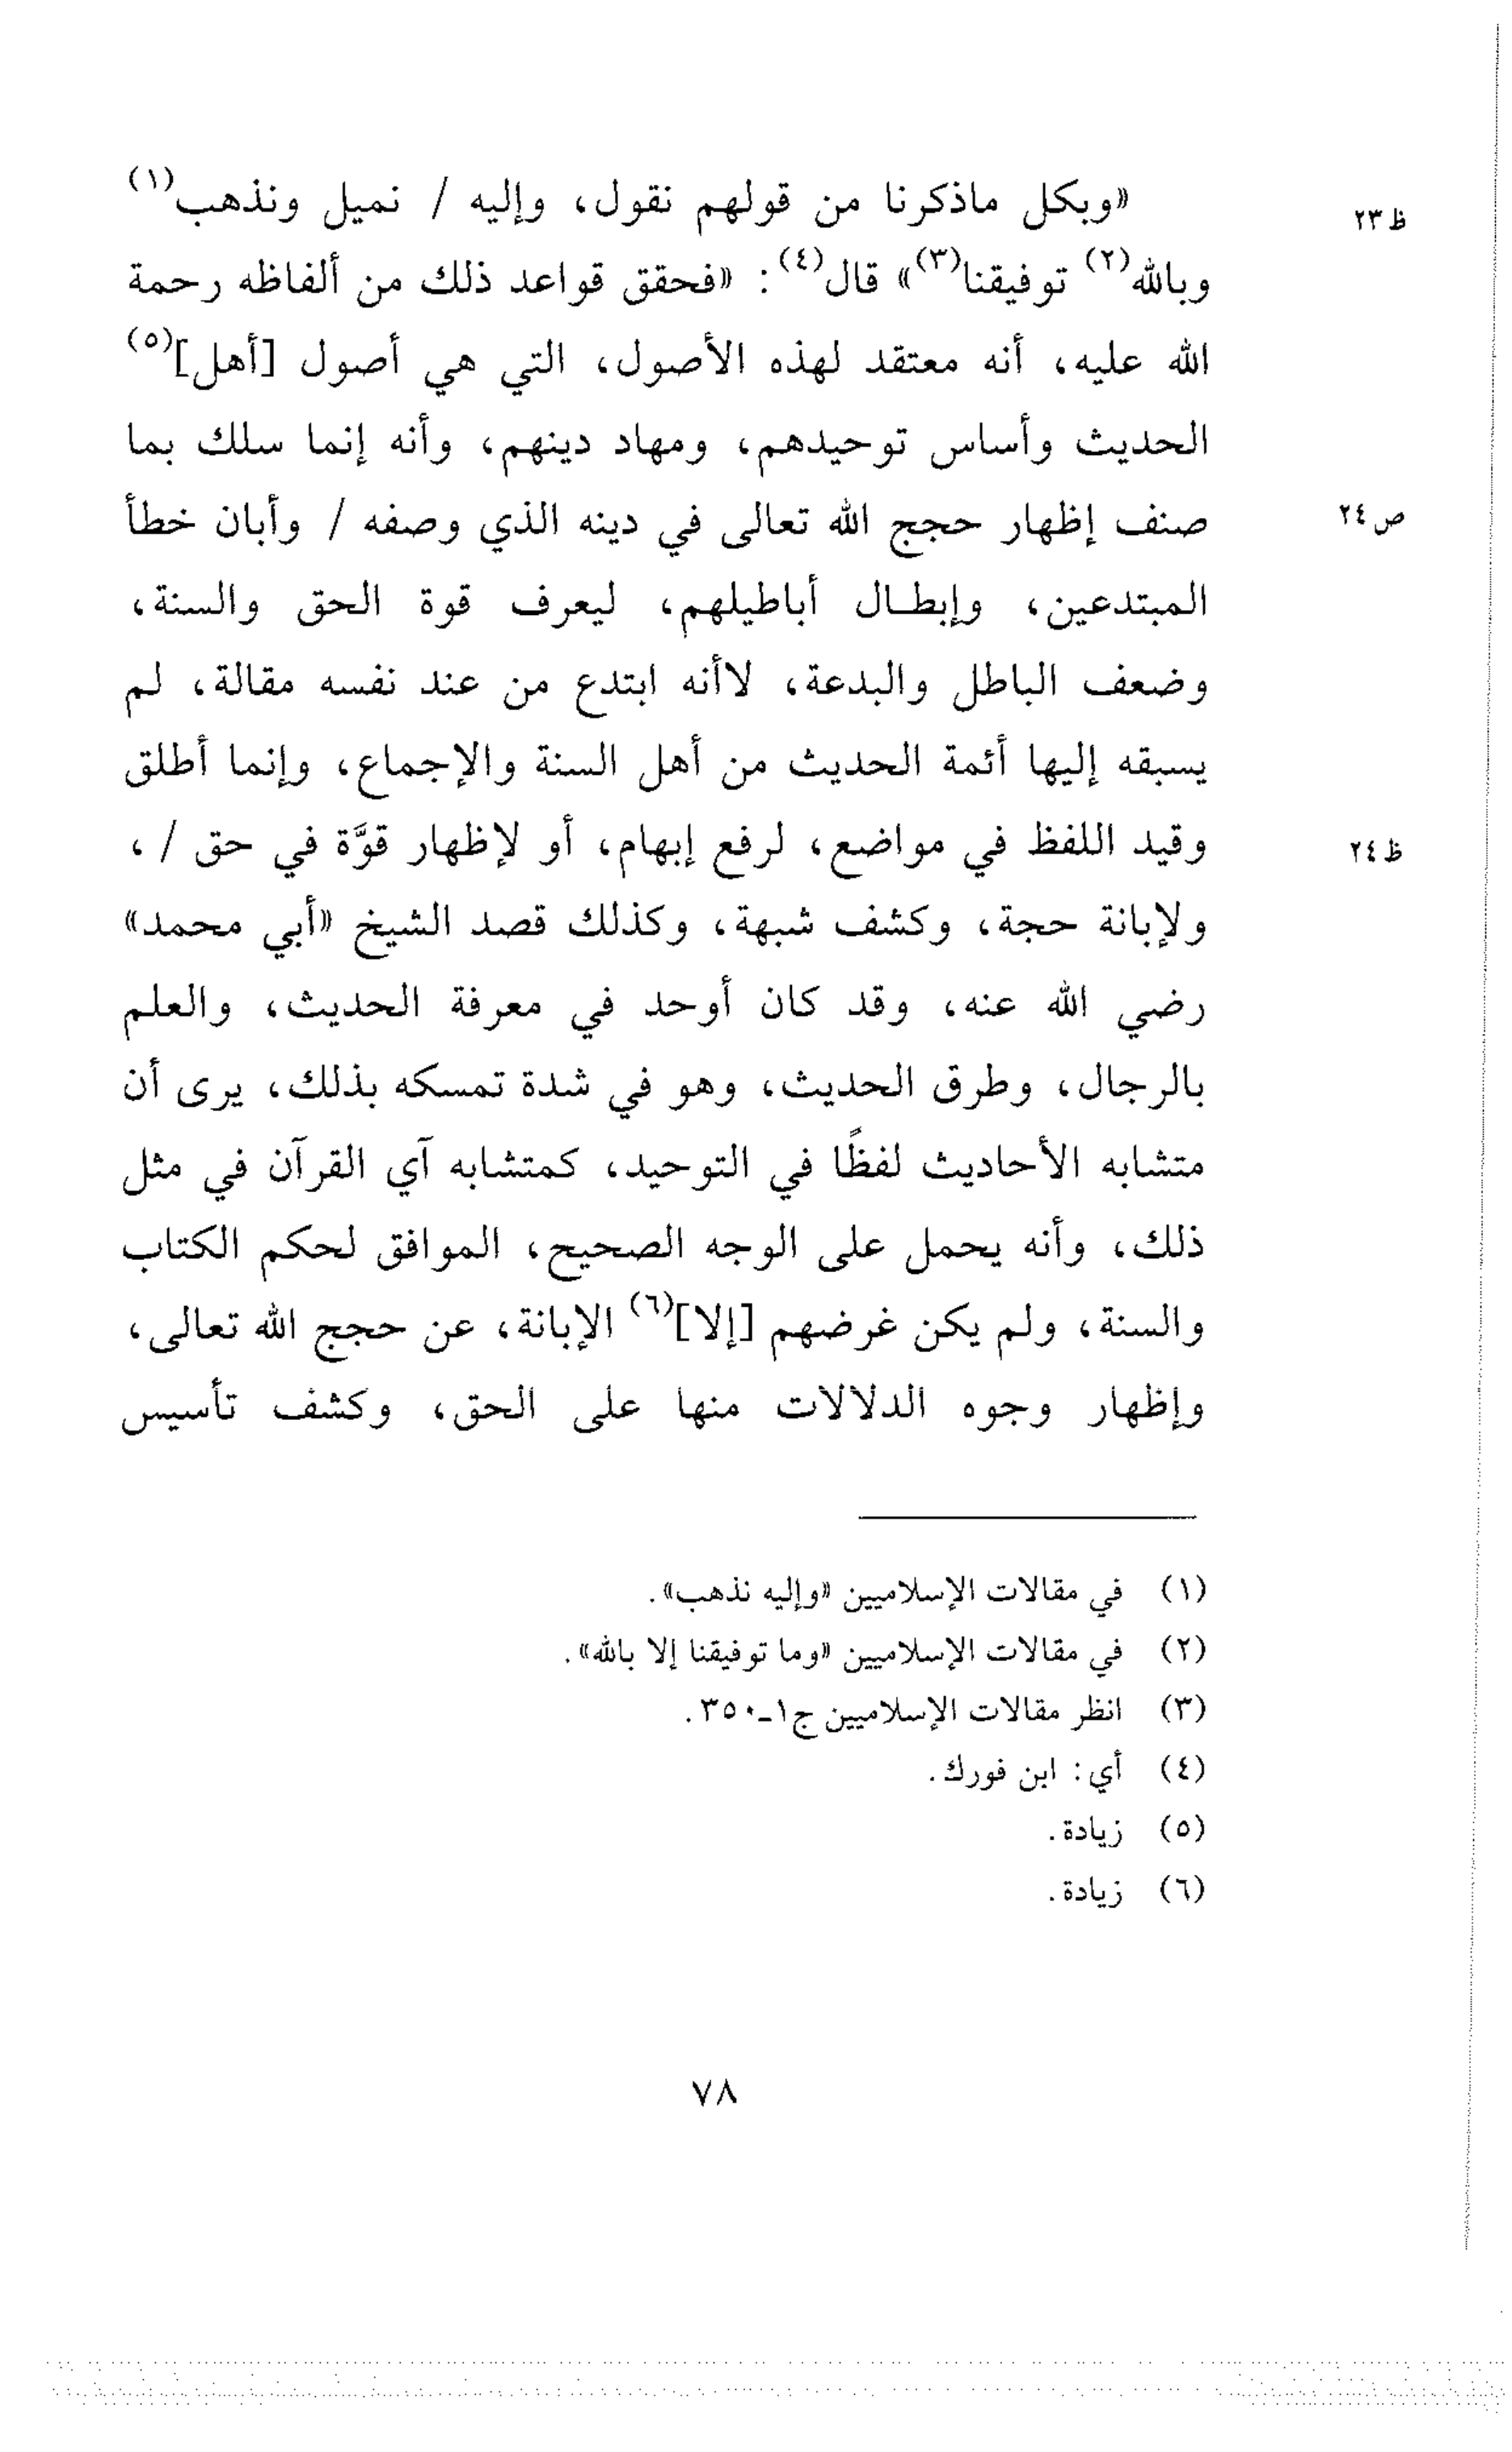 «وبكل ماذكرنا من قولهم نقول، وإليه / نميل ونذهب(١)
ظ ٢٣
وبالله(٢) توفيقنا(٣)» قال(٤): «فحقق قواعد ذلك من ألفاظه رحمة
الله عليه، أنه معتقد لهذه الأصول، التي هي أصول [أهل](٥)
الحديث وأساس توحيدهم، ومهاد دينهم، وأنه إنما سلك بما
صنف إظهار حجج الله تعالى في دينه الذي وصفه / وأبان خطأ
ص ٢٤
المبتدعين، وإبطـال أباطيلهم، ليعرف قوة الحق والسنة،
وضعف الباطل والبدعة، لاأنه ابتدع من عند نفسه مقالة، لم
يسبقه إليها أئمة الحديث من أهل السنة والإجماع، وإنما أطلق
وقيد اللفظ في مواضع، لرفع إبهام، أو لإظهار قوَّة في حق /،
ظ ٢٤
ولإبانة حجة، وكشف شبهة، وكذلك قصد الشيخ «أبي محمد»
رضي الله عنه، وقد كان أوحد في معرفة الحديث، والعلم
بالرجال، وطرق الحديث، وهو في شدة تمسكه بذلك، يرى أن
متشابه الأحاديث لفظًا في التوحيد، كمتشابه آي القرآن في مثل
ذلك، وأنه يحمل على الوجه الصحيح، الموافق لحكم الكتاب
والسنة، ولم يكن غرضهم [إلا](٦) الإبانة، عن حجج الله تعالى،
وإظهار وجوه الدلالات منها على الحق، وكشف تأسيس
(١) في مقالات الإسلاميين «وإليه نذهب».
(٢) في مقالات الإسلاميين «وما توفيقنا إلا بالله».
(٣) انظر مقالات الإسلاميين ج١ـ٣٥٠.
(٤) أي: ابن فورك.
(٥) زيادة.
(٦) زيادة.
٧٨